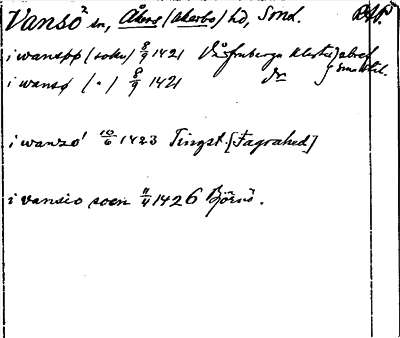 Vansö² sn, Åkers (Åkerbo) hd, Smd. DAP
i wanspø (sokn) 8/9 1421 Vårfruberga kloster
i wansø (·) 8/9 1421 Do
i wanzo' 10/6 1423 Tingst. [Fagrahed]
i vansio socn 11/4 1426 Björnö.